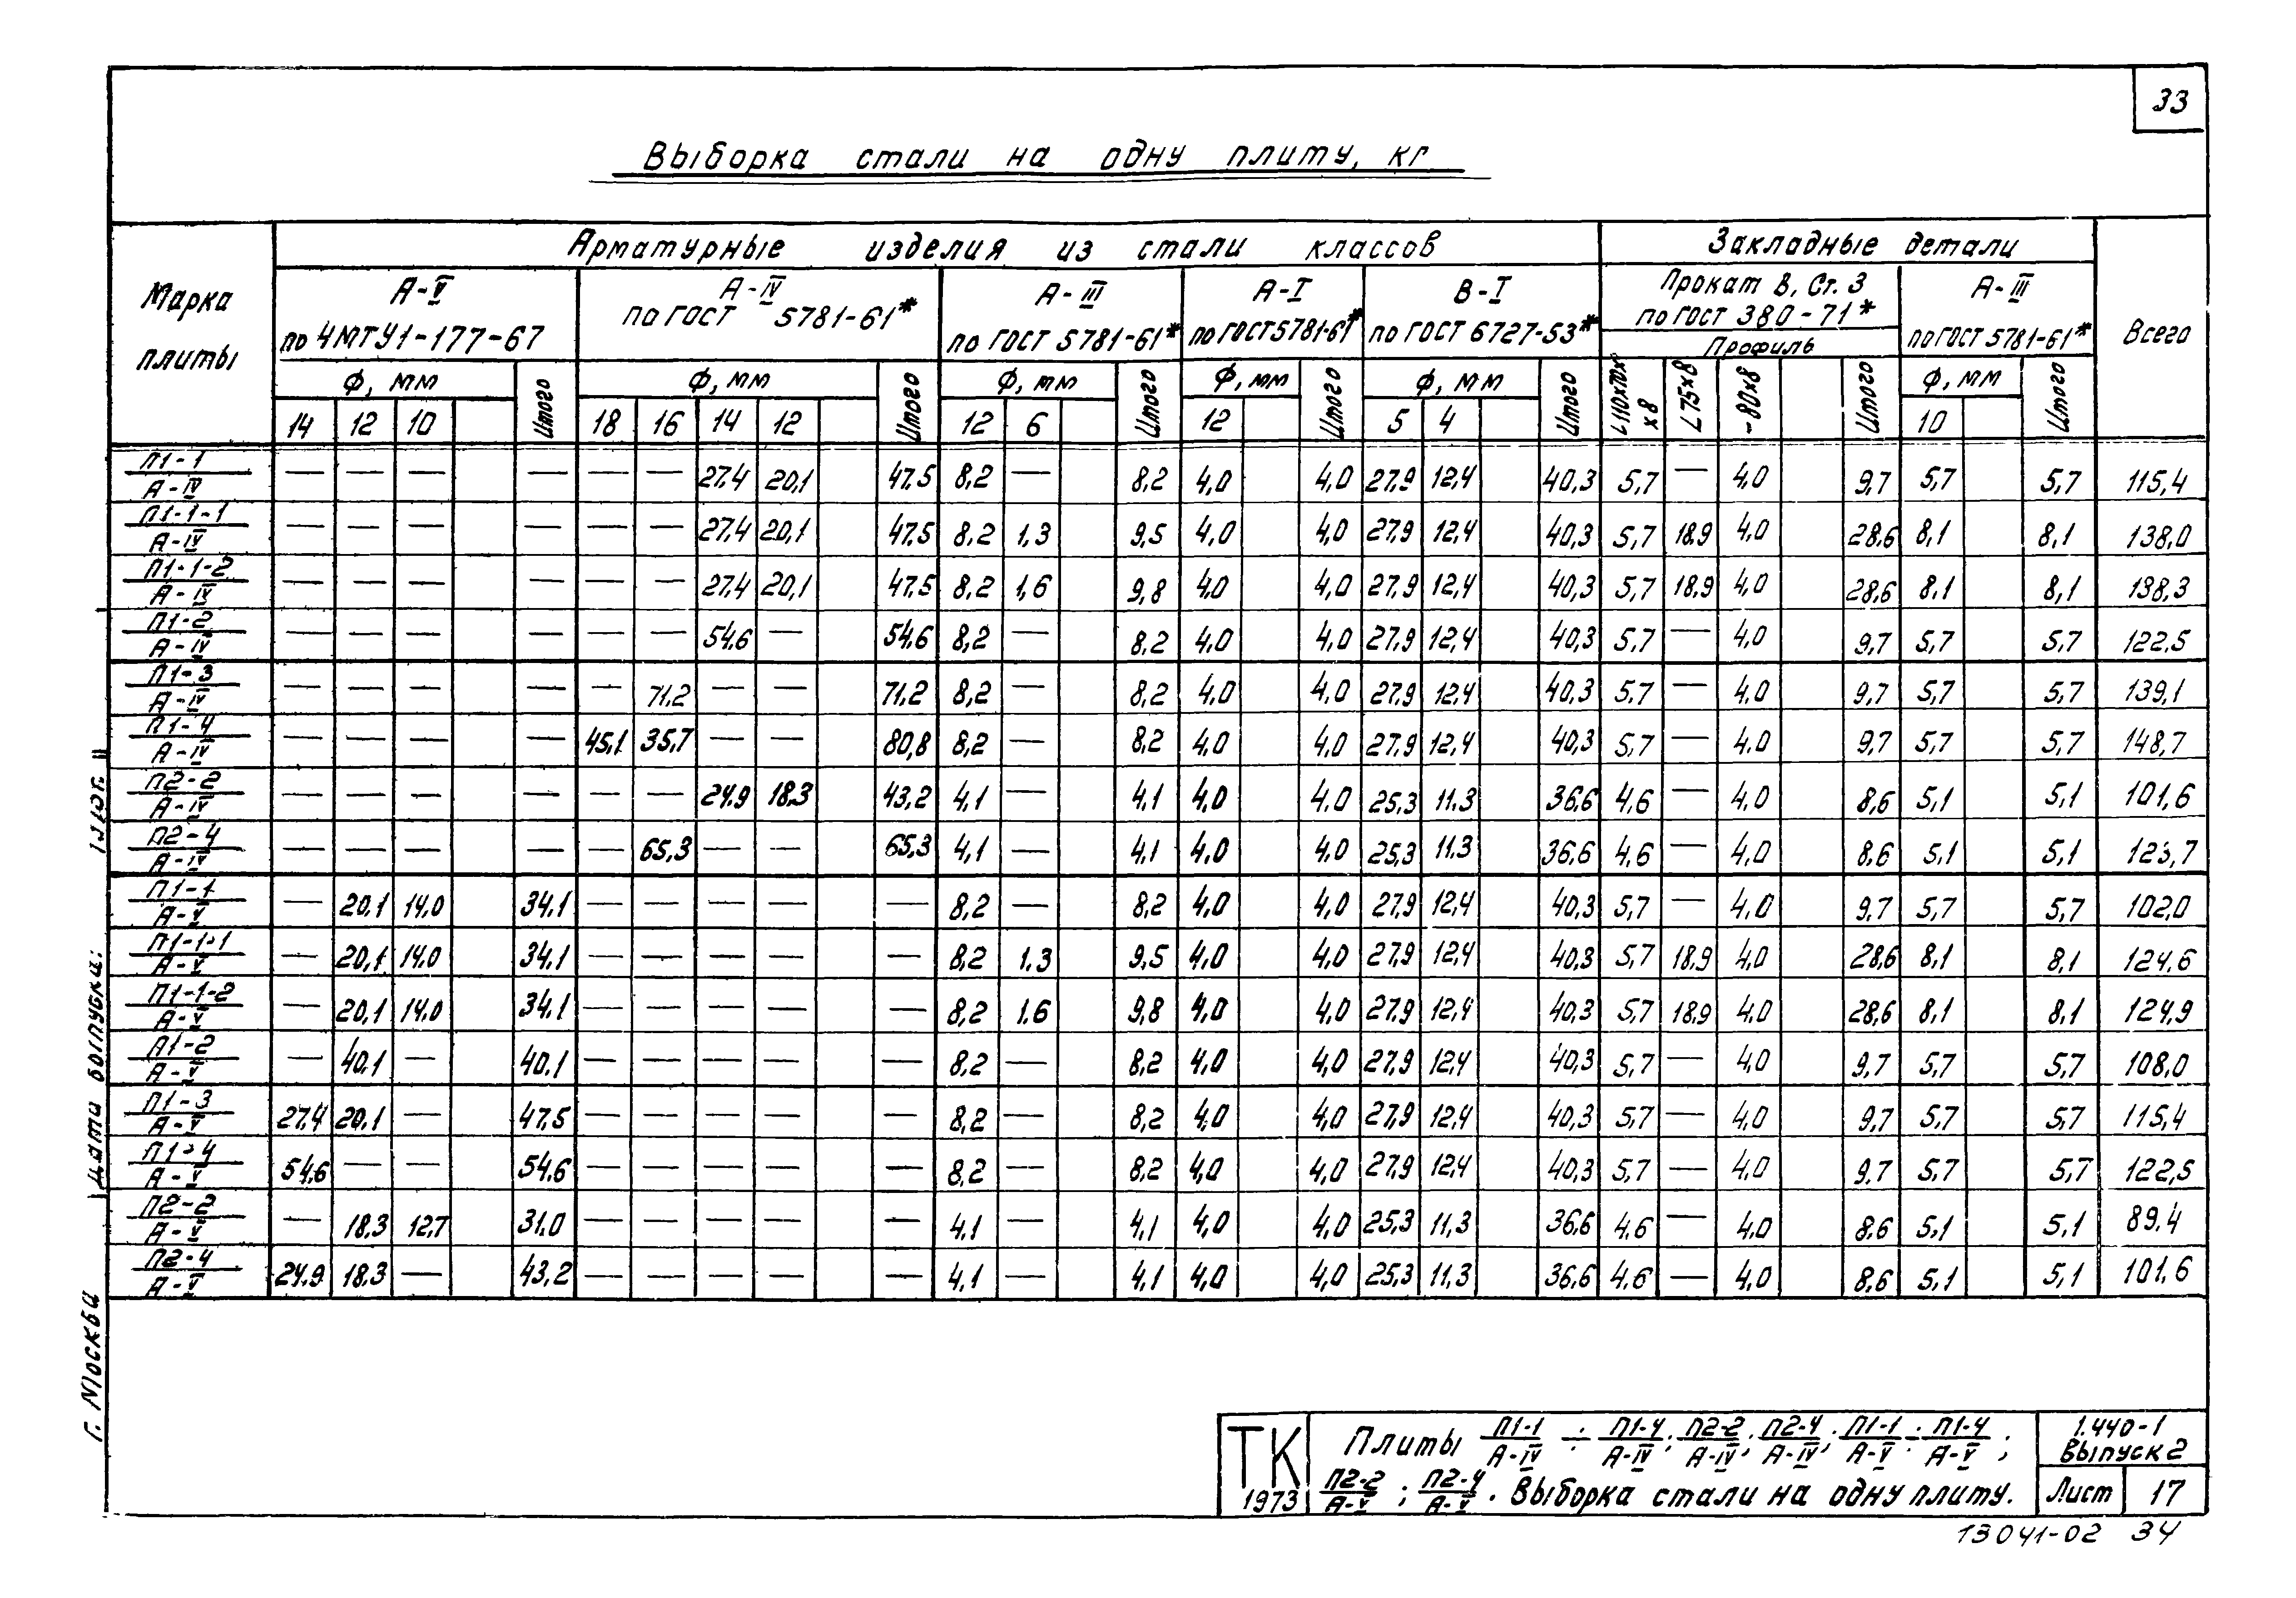 33
Выборка стали на одну плиту, кг
Марка плиты | Арматурные изделия из стали классов | Закладные детали | Всего
А-V по ЧМТУ1-177-67 | А-IV по ГОСТ 5781-61* | А-III по ГОСТ 5781-61* | А-I по ГОСТ 5781-61* | В-I по ГОСТ 6727-53* | Прокат В, Ст. 3 по ГОСТ 380-71* | А-III по ГОСТ 5781-61*
Профиль
Ф, мм | Итого | Ф, мм | Итого | Ф, мм | Итого | Ф, мм | Итого | Ф, мм | Итого | ∟110х70х х8 | ∟75х8 | -80х8 | Итого | Ф, мм | Итого
14 | 12 | 10 | 18 | 16 | 14 | 12 | 12 | 6 | 12 | 5 | 4 | 10
П1-1/А-IV | — | — | — | — | — | — | 27.4 | 20,1 | 47.5 | 8,2 | — | 8,2 | 4,0 | 4,0 | 27,9 | 12,4 | 40,3 | 5,7 | — | 4,0 | 9,7 | 5,7 | 5,7 | 115,4
П1-1-1/А-IV | — | — | — | — | — | — | 27,4 | 20,1 | 47,5 | 8,2 | 1,3 | 9,5 | 4,0 | 4,0 | 27,9 | 12,4 | 40,3 | 5,7 | 18,9 | 4,0 | 28,6 | 8,1 | 8,1 | 138,0
П1-1-2/А-IV | — | — | — | — | — | — | 27,4 | 20,1 | 47,5 | 8,2 | 1,6 | 9,8 | 4,0 | 4,0 | 27,9 | 12,4 | 40,3 | 5,7 | 18,9 | 4,0 | 28,6 | 8,1 | 8,1 | 138,3
П1-2/А-IV | — | — | — | — | — | — | 54,6 | — | 54,6 | 8,2 | — | 8,2 | 4,0 | 4,0 | 27,9 | 12,4 | 40,3 | 5,7 | — | 4,0 | 9,7 | 5,7 | 5,7 | 122,5
П1-3/А-IV | — | — | — | — | — | 71,2 | — | — | 71,2 | 8,2 | — | 8,2 | 4,0 | 4,0 | 27,9 | 12,4 | 40,3 | 5,7 | — | 4,0 | 9,7 | 5,7 | 5,7 | 139,1
П1-4/А-IV | — | — | — | — | 45,1 | 35,7 | — | — | 80,8 | 8,2 | — | 8,2 | 4,0 | 4,0 | 27,9 | 12,4 | 40,3 | 5,7 | — | 4,0 | 9,7 | 5,7 | 5,7 | 148,7
П2-2/А-IV | — | — | — | — | — | — | 24,9 | 18,3 | 43,2 | 4,1 | — | 4,1 | 4,0 | 4,0 | 25,3 | 11,3 | 36,6 | 4,6 | — | 4,0 | 8,6 | 5,1 | 5,1 | 101,6
П2-4/А-IV | — | — | — | — | — | 65,3 | — | — | 65,3 | 4,1 | — | 4,1 | 4,0 | 4,0 | 25,3 | 11,3 | 36,6 | 4,6 | — | 4,0 | 8,6 | 5,1 | 5,1 | 123,7
П1-1/А-V | — | 20,1 | 14,0 | 34,1 | — | — | — | — | — | 8,2 | — | 8,2 | 4,0 | 4,0 | 27,9 | 12,4 | 40,3 | 5,7 | — | 4,0 | 9,7 | 5,7 | 5,7 | 102,0
П1-1-1/А-V | — | 20,1 | 14,0 | 34,1 | — | — | — | — | — | 8,2 | 1.3 | 9,5 | 4,0 | 4,0 | 27,9 | 12,4 | 40,3 | 5,7 | 18,9 | 4,0 | 28,6 | 8,1 | 8,1 | 124,6
П1-1-2/А-V | — | 20,1 | 14,0 | 34,1 | — | — | — | — | — | 8,2 | 1.6 | 9,8 | 4,0 | 4,0 | 27,9 | 12,4 | 40,3 | 5,7 | 18,9 | 4,0 | 28,6 | 8,1 | 8,1 | 124,9
П1-2/А-V | — | 40,1 | — | 40,1 | — | — | — | — | — | 8,2 | — | 8,2 | 4,0 | 4,0 | 27,9 | 12,4 | 40,3 | 5,7 | — | 4,0 | 9,7 | 5,7 | 5,7 | 108,0
П1-3/А-V | 27,4 | 20,1 | — | 47,5 | — | — | — | — | — | 8,2 | — | 8,2 | 4,0 | 4,0 | 27,9 | 12,4 | 40,3 | 5,7 | — | 4,0 | 9,7 | 5,7 | 5,7 | 115,4
П1-4/А-V | 54,6 | — | — | 54,6 | — | — | — | — | — | 8,2 | — | 8,2 | 4,0 | 4,0 | 27,9 | 12,4 | 40,3 | 5,7 | — | 4,0 | 9,7 | 5,7 | 5,7 | 122,5
П2-2/А-V | — | 18,3 | 12,7 | 31,0 | — | — | — | — | — | 4,1 | — | 4,1 | 4,0 | 4,0 | 25,3 | 11,3 | 36,6 | 4,6 | — | 4,0 | 8,6 | 5,1 | 5,1 | 89,4
П2-4/А-V | 24,9 | 18,3 | — | 43,2 | — | — | — | — | — | 4,1 | — | 4,1 | 4,0 | 4,0 | 25,3 | 11,3 | 36,6 | 4,6 | — | 4,0 | 8,6 | 5,1 | 5,1 | 101,6
г. Москва
Дата выпуска:
ТК
1973
Плиты П1-1/А-IV ÷ П1-4/А-IV; П2-2/А-IV; П2-4/А-IV; П1-1/А-V ÷ П1-4/А-V;
П2-2/А-V; П2-4/А-V. Выборка стали на одну плиту.
1.440-1
Выпуск 2
Лист 17
13041-02 34